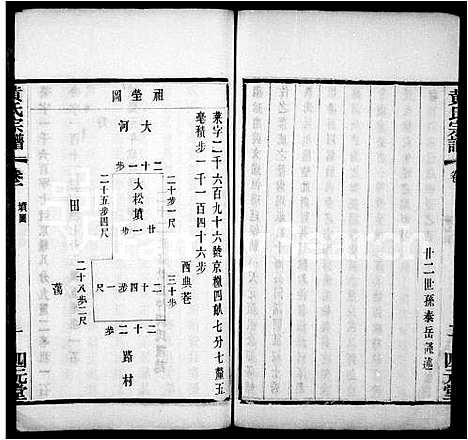 黄氏宗譜
卷
廿二世孫泰岳謹述
二
四元堂
葉字二千六百九十六號京樻四畝七分七釐五
毫積步一千一百四十六步
祖塋圖
大河
二十一步
二十步一尺
大松墳一
廿
二十五步四尺
田
西典巷
三十步
二十八步二尺
二十四步
一尺
蕩
二十二步
路村
黄氏宗譜
卷一
墳圖
一
四元堂